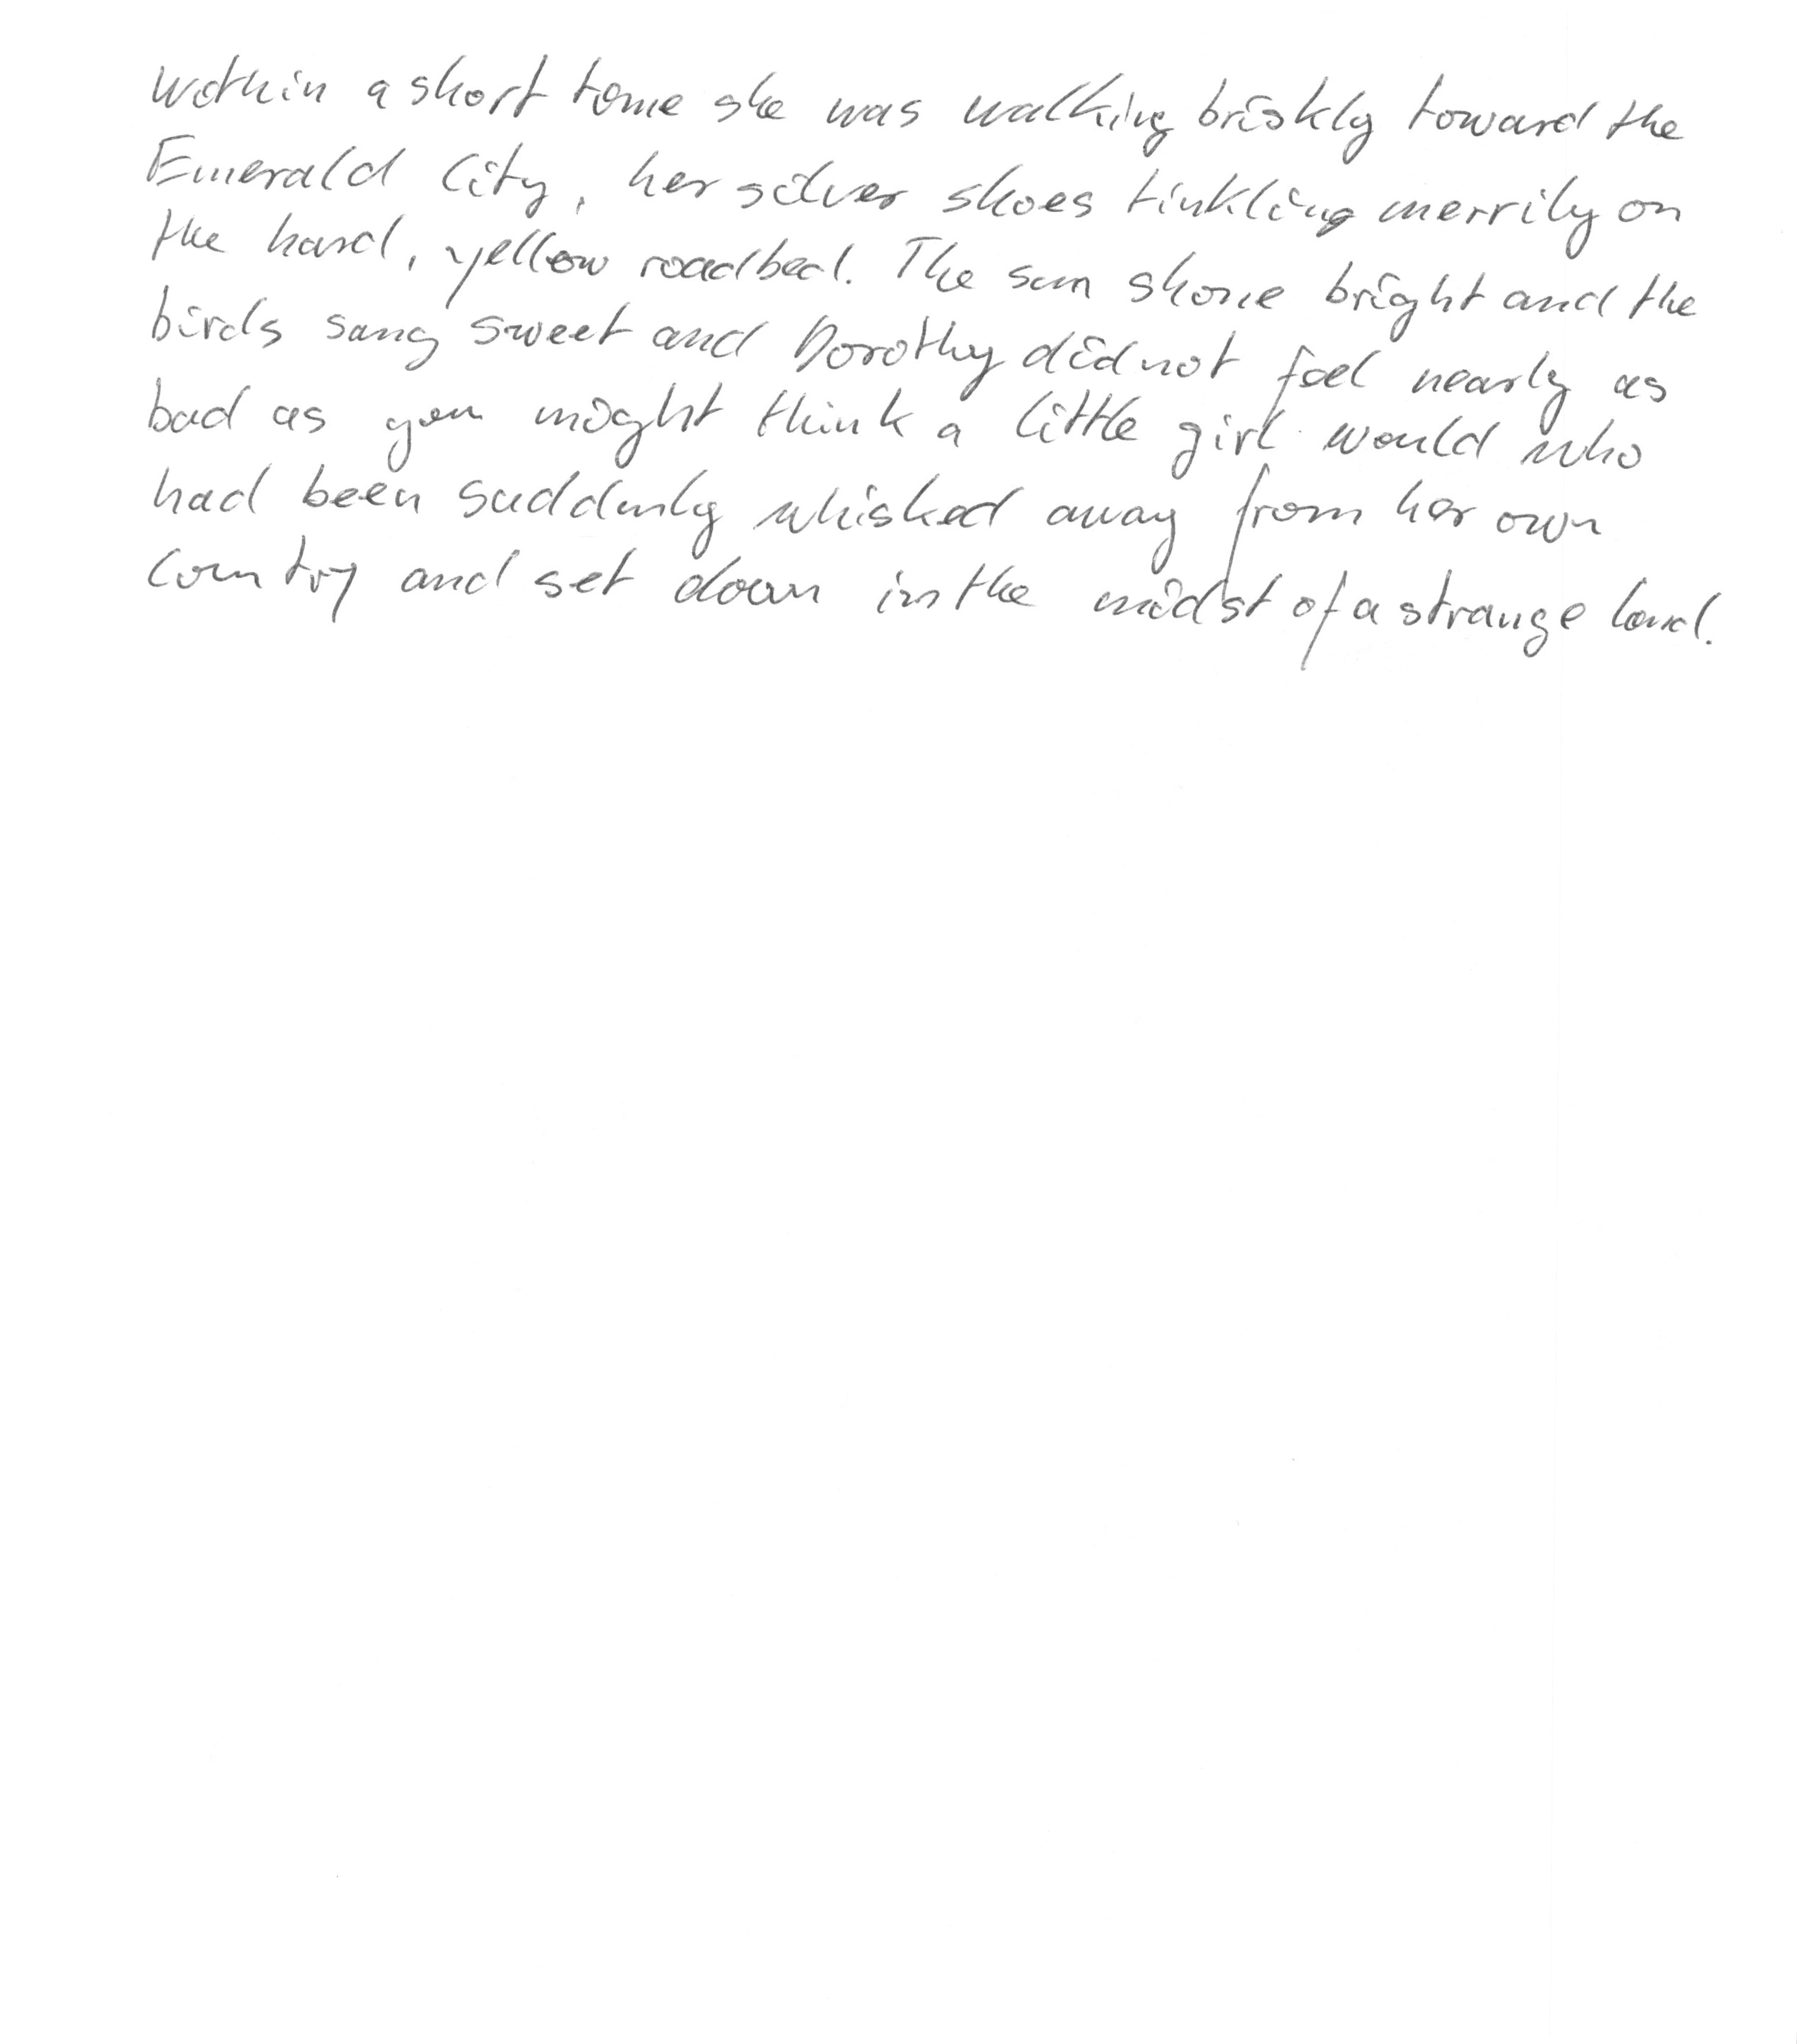 Within a short time she was walking briskly toward the
Emerald City, her silver shoes tinkling merrily on
the hard, yellow roadbed. The sun shone bright and the
birds sang sweet and Dorothy did not feel nearly as
bad as you might think a little girl would who
had been suddenly whisked away from her own
country and set down in the midst of a strange land.